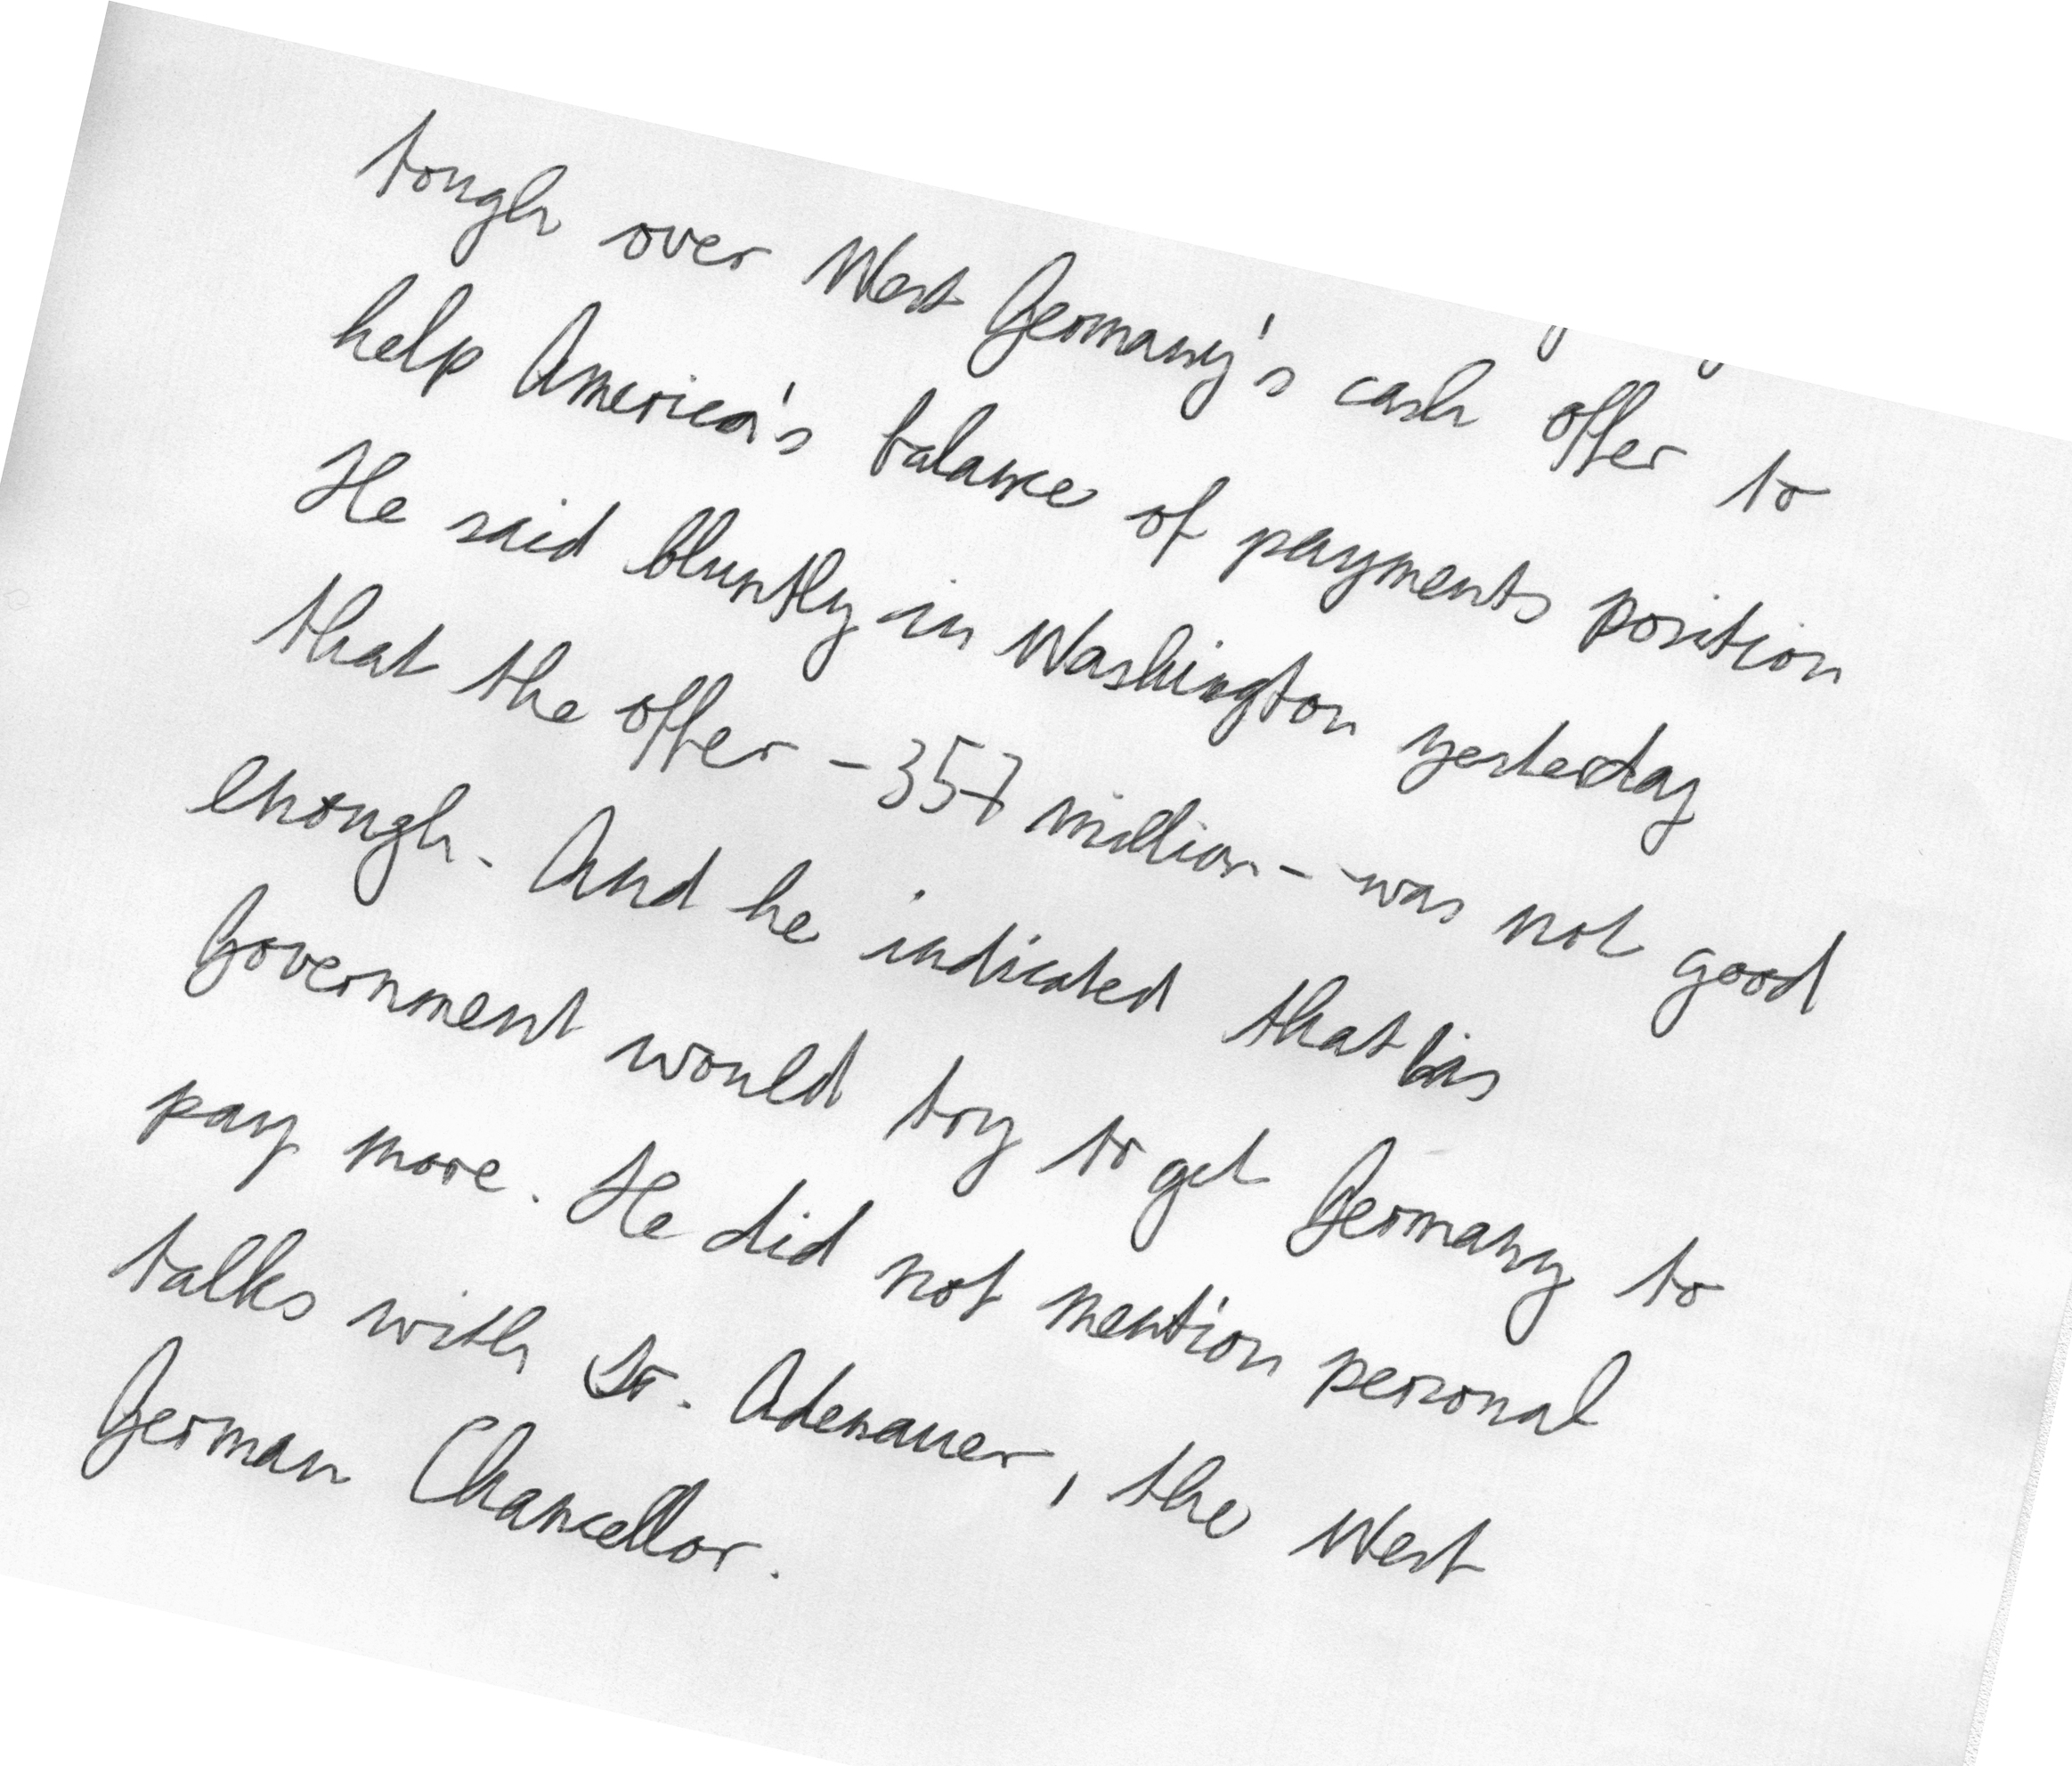 tough over West Germany's cash offer to
help America's balance of payments position
He said bluntly in Washington yesterday
that the offer - 357 million - was not good
enough. And he indicated that his
Government would try to get Germany to
pay more. He did not mention personal
talks with Dr. Adenauer, the West
German Chancellor.